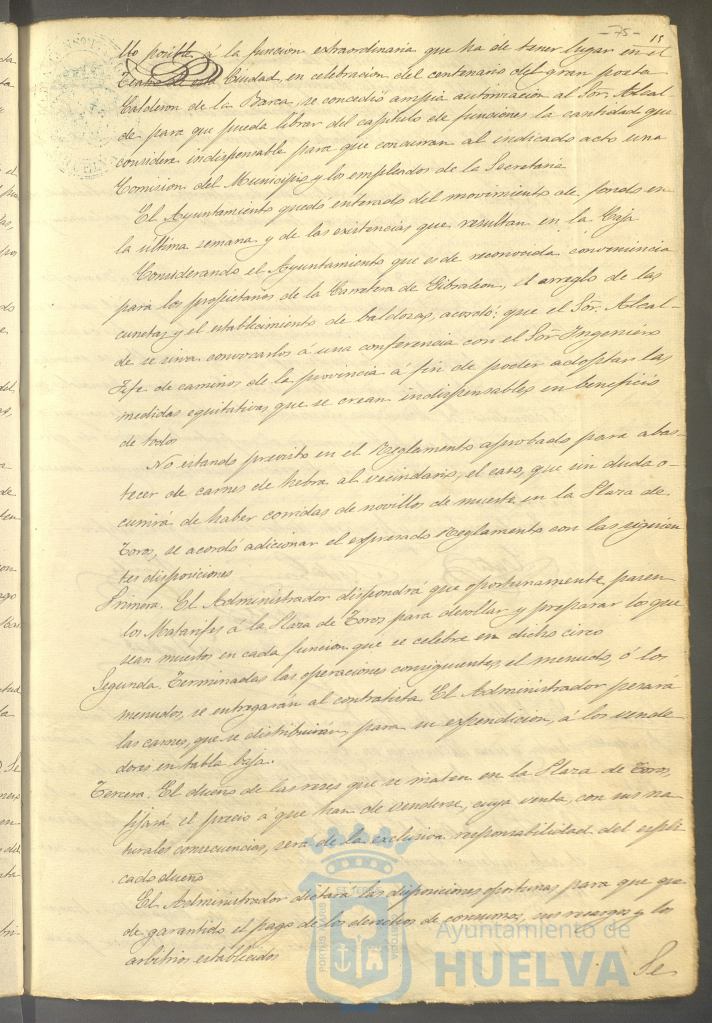 -75- 15
llo posible á la funcion extraordinaria que ha de tener lugar en el
Teatro de esta Ciudad, en celebracion del centenario del gran poeta
Calderon de la Barca, se concedió amplia autorizacion al Sor. Alcal-
de para que pueda librar del capitulo de funciones la cantidad que
considere indispensable para que concurran al indicado acto una
Comision del Municipio y los empleados de la Secretaria
El Ayuntamiento quedó enterado del movimiento de fondos en
la ultima semana y de las existencias que resultan en la Caja
Considerando el Ayuntamiento que es de reconocida conveniencia
para los propietarios de la Carretera de Gibraleon, el arreglo de las
cunetas y el establecimiento de baldosas, acordó: que el Sor. Alcal-
de se sirva convocarlos á una conferencia con el Sor. Ingeniero
Jefe de caminos de la provincia á fin de poder adoptar las
medidas equitativas que se crean indispensables en beneficio
de todos
No estando previsto en el Reglamento aprobado para abas-
tecer de carnes de hebra al vecindario, el caso, que sin duda o-
currirá de haber corridas de novillos de muerte en la Plaza de
Toros, se acordó adicionar el expresado Reglamento con las siguien-
tes disposiciones
Primera. El Administrador dispondrá que oportunamente pasen
los Matarifes á la Plaza de Toros para desollar y preparar los que
sean muertos en cada funcion que se celebre en dicho circo
Segunda. Terminadas las operaciones consiguientes, el menudo, ó los
menudos, se entregarán al contratista. El Administrador pesará
las carnes, que se distribuirán, para su expendicion, á los vende-
dores en tabla baja.
Tercera. El dueño de las reses que se maten en la Plaza de Toros,
fijará el precio á que han de venderse, cuya venta, con sus na-
turales consecuencias, sera de la exclusiva responsabilidad del espli-
cado dueño
El Administrador dictará las disposiciones oportunas para que que-
de garantido el pago de los derechos de consumos, sus recargos y los
arbitrios establecidos
Se
Ayuntamiento de
HUELVA